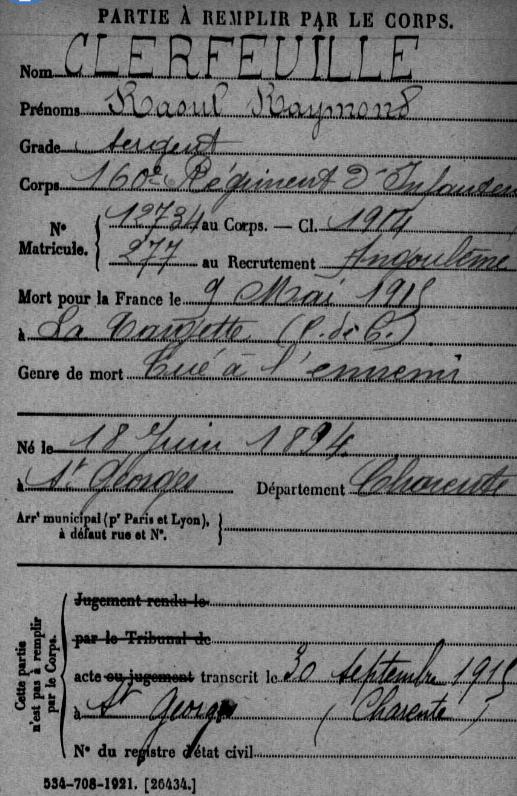 PARTIE À REMPLIR PAR LE CORPS.
Nom CLERFEUILLE
Prénoms Raoul Raymond
Grade Sergent
Corps 160e Régiment d'Infanterie
N° Matricule. { 12734 au Corps. — Cl. 1914
277 au Recrutement Angoulême
Mort pour la France le 9 Mai 1915
à La Targette (P. de C.)
Genre de mort Tué à l'ennemi
Né le 18 Juin 1894
à St Georges Département Charente
Arrt municipal (pr Paris et Lyon),
à défaut rue et N°. }
Cette partie n'est pas à remplir par le Corps.
Jugement rendu le
par le Tribunal de
acte ou jugement transcrit le 30 Septembre 1915
à St Georges (Charente)
N° du registre d'état civil
534-708-1921. [26434.]